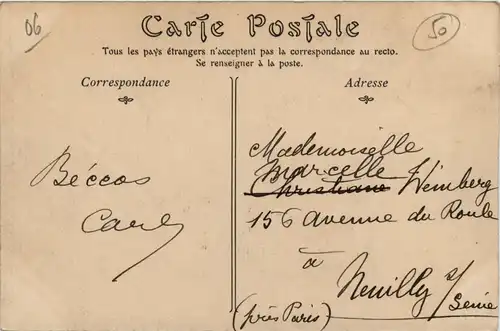 06
Carte Postale
50
Tous les pays étrangers n'acceptent pas la correspondance au recto.
Se renseigner à la poste.
Correspondance
Adresse
Béccos
Carl
Mademoiselle
Marcelle
Christiane Weinberg
156 avenue du Roule
à
Neuilly s/
Seine
(près Paris)